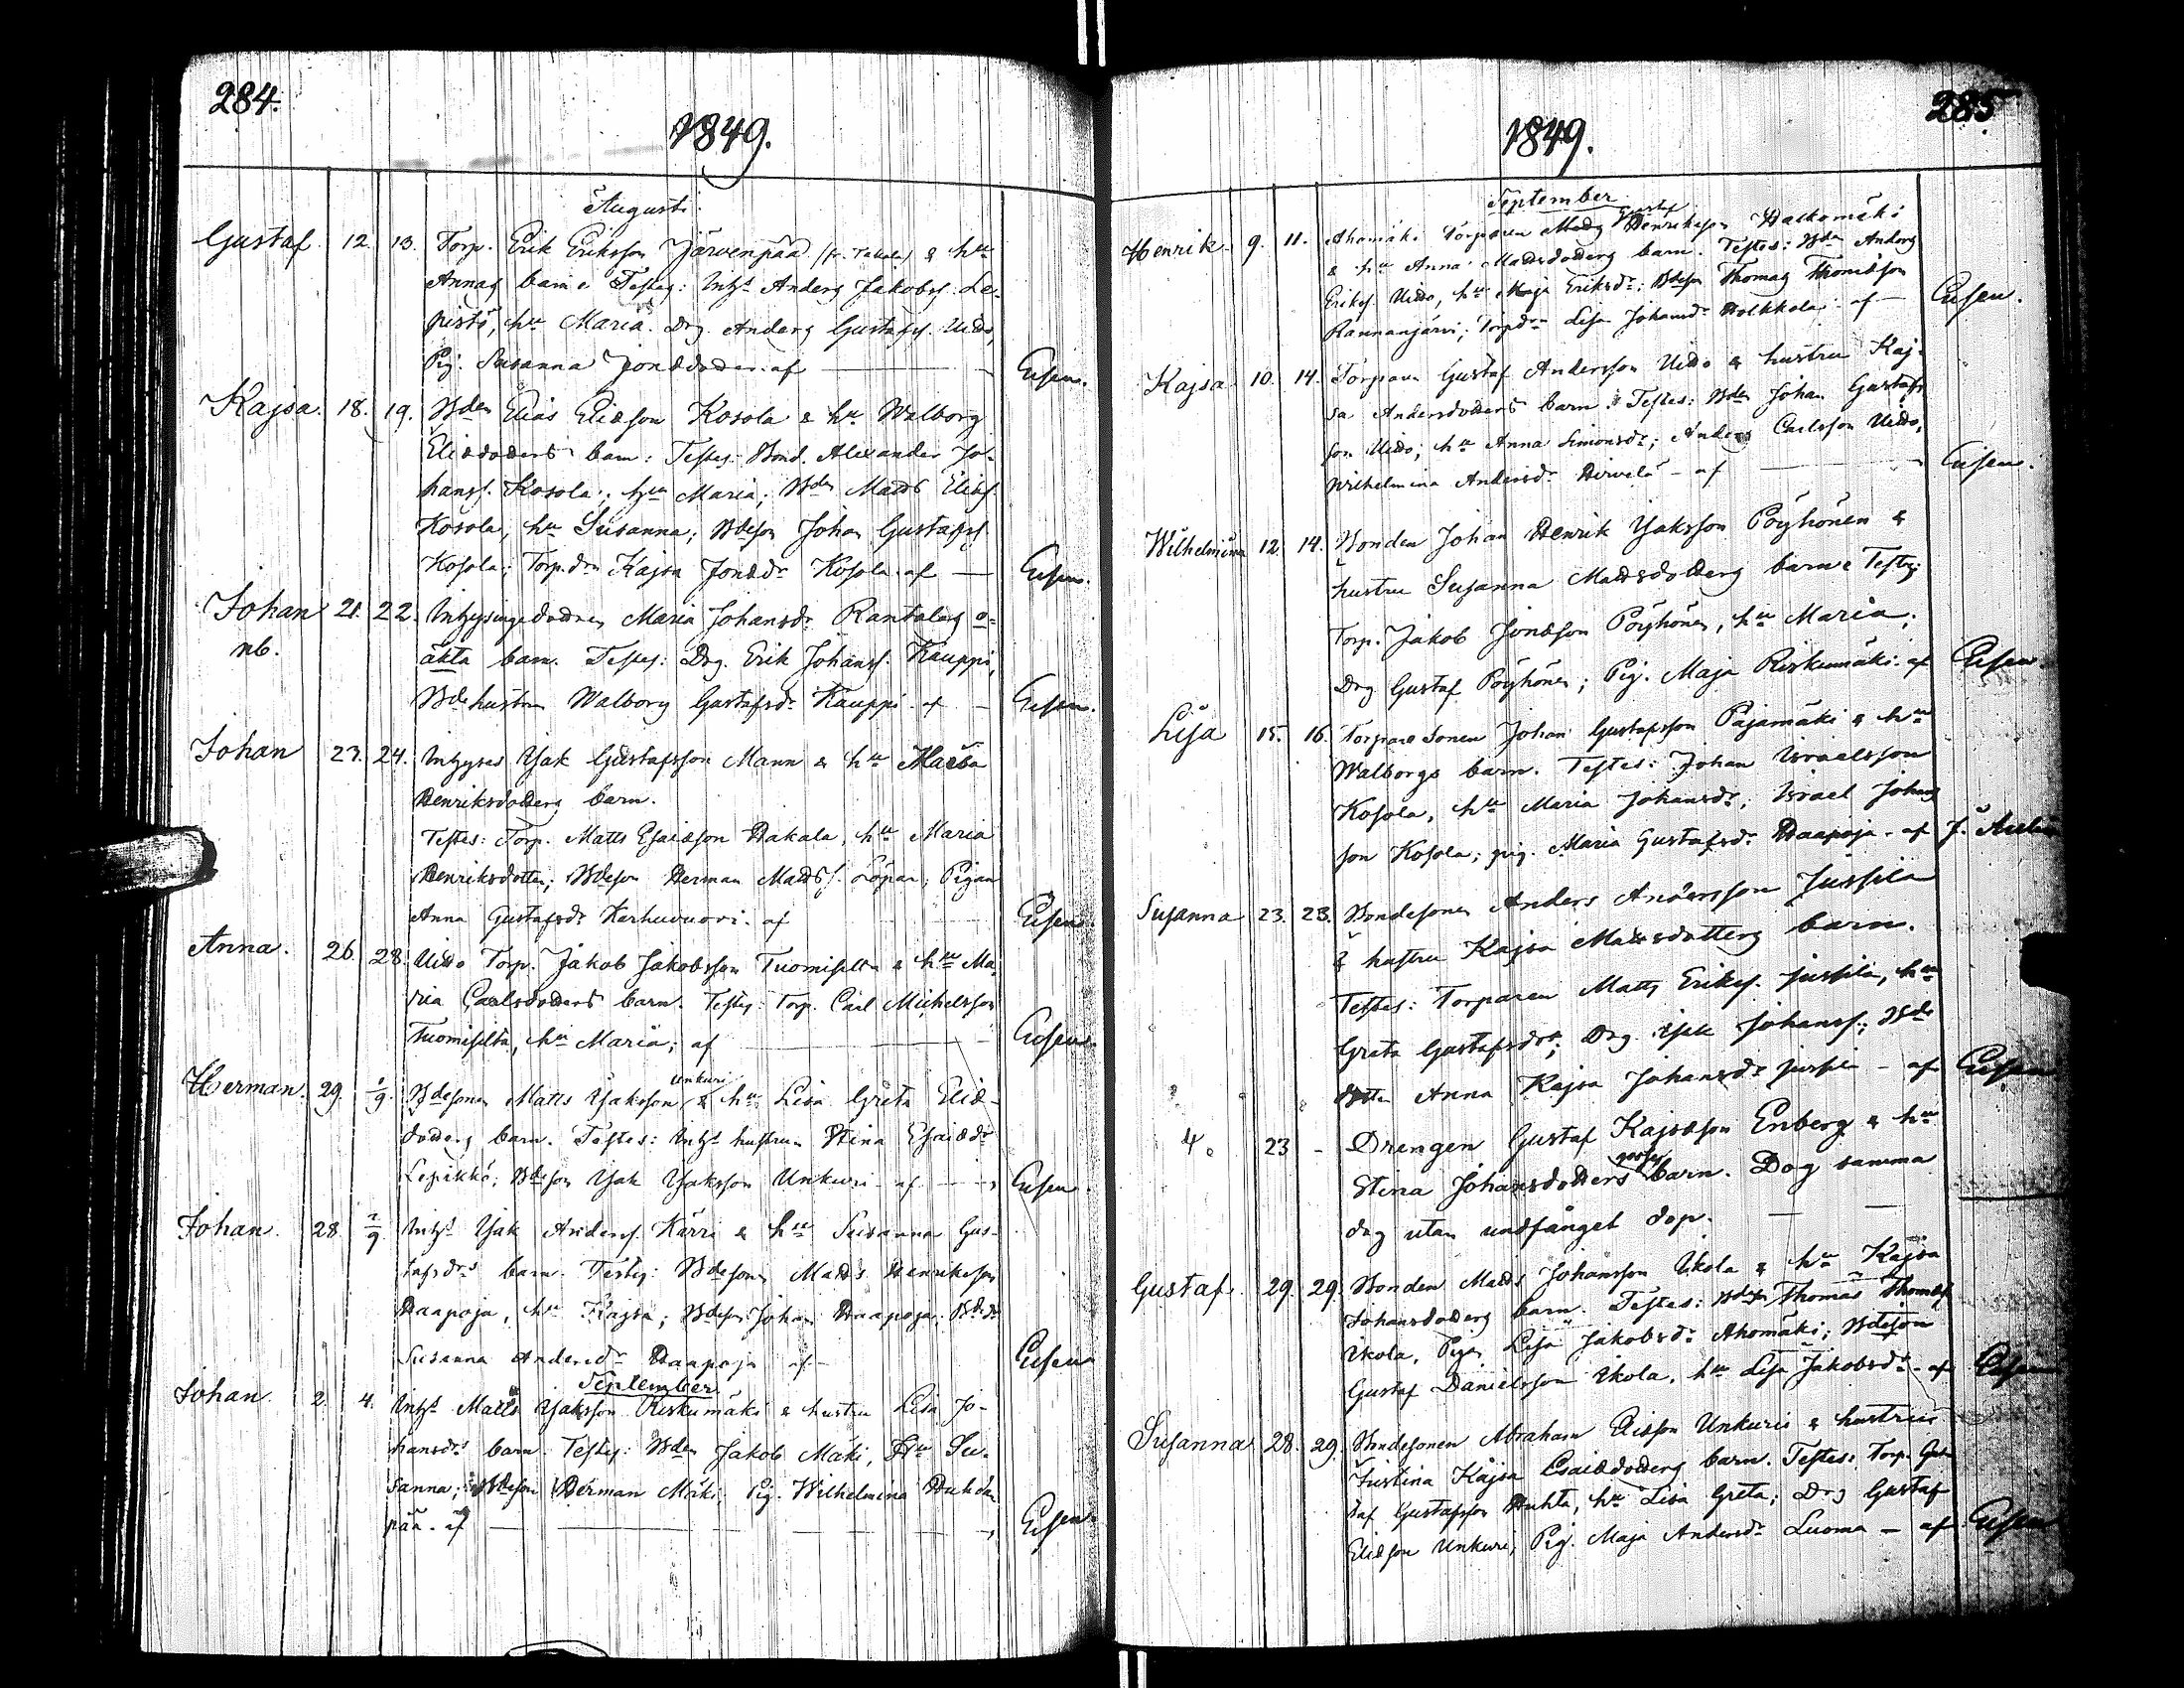 284.
1849.
Augusti.
Gustaf. 12. 13. Torp. Erik Eriksson Järvenpää (fr. Takala) & hu
Annas barn. Testes: Inhs Anders Jakobss. Le-
pistö, hu Maria. Drg. Anders Gustafss. Uitto,
Pig. Susanna Jonædoter. af — Eisen.
Kajsa. 18. 19. Bden Elias Eliæson Kosola & hu Walborg
Eliædotters barn: Testes: Bond. Alexander Jo-
hanss. Kosola; hu Maria; Bden Matts Eliæs.
Kosola, hu Susanna; Bdeson Johan Gustafss.
Kosola; Torp.dr Kajsa Jonædr Kosola. af — Eisen.
Johan 21. 22. Inhysingedottren Maria Johansdr Rantalas o-
nb. äkta barn. Testes: Drg. Erik Johanss. Kauppi,
Bdehustrun Walborg Gustafsdr Kauppi. af — Eisen.
Johan 23. 24. Inhyses Isak Gustafsson Mann & hu Maria
Henriksdotters barn.
Testes: Torp. Matts Esaiæson Hakala, hu Maria
Henriksdotter; Bdeson Herman Mattss. Löpar; Pigan
Anna Gustafsdr Karhuvuori. af Eisen.
Anna. 26. 28. Uitto Torp. Jakob Jakobsson Tuomisilta & hu Ma-
ria Carlsdotters barn. Testes: Torp. Carl Michelsson
Tuomisilta, hu Maria; af — Eisen.
Herman. 29. 1/9. Bdesonen Matts Isaksson Unkuri & hu Lisa Greta Eliæ-
dotters barn. Testes: Inhs hustrun Stina Esaiædr
Lepikkö; Bdeson Isak Isaksson Unkuri. af — Eisen.
Johan. 28 2/9. Inhs Isak Anderss. Karri & hu Susanna Gus-
tafsdrs barn. Testes: Bdesonen Matts Henriksson
Haapoja, hu Kajsa; Bdeson Johan Haapoja; Bdedr
Susanna Andersdr Haapoja af — Eisen
September
Johan. 2. 4. Inhs Matts Isaksson Riskumäki & hustru Lisa Jo-
hansdrs barn. Testes: Bden Jakob Mäki, Hu Su-
sanna; Bdeson Herman Mäki, Pig. Wilhelmina Huhtan-
pää. af — Eisen.
285
1849.
September
Henrik. 9. 11. Ahomäki Torparen Gustaf Henriksson Walkamäki
& hu Anna Mattsdotters barn. Testes: Bden Anders
Erikss. Uitto, hu Maja Eriksdr; Bdeson Thomas Thomæson
Rannanjärvi; Torpdrn Lisa Johansdr Holkkola. af — Eisen.
Kajsa. 10. 14. Torparen Gustaf Andersson Uitto & hustru Kaj-
sa Andersdotters barn. Testes: Bden Johan Gustafs-
son Uitto; hu Anna Simonsdr; Anders Carlsson Uitto,
Wilhelmina Andersdr Hirvelä - af — Eisen.
Wilhelmina 12. 14. Bonden Johan Henrik Isaksson Pöyhönen &
hustru Susanna Mattsdotters barn. Testes:
Torp. Jakob Jonæson Pöyhönen, hu Maria;
Drg Gustaf Pöyhönen; Pig. Maja Riskumäki. af Eisen
Lisa 15. 16. Torparesonen Johan Gustafsson Pajamäki & hu
Walborgs barn. Testes: Johan Israelsson
Kosola, hu Maria Johansdr; Israel Johans-
son Kosola; pig. Maria Gustafsdr Haapoja. af J. Aulin
Susanna 23. 23. Bondesonen Anders Andersson Jussila
& hustru Kajsa Mattsdotters barn.
Testes: Torparen Matts Erikss. Jussila, hu
Greta Gustafsdr; Drg Isak Johanss; Bde
dotter Anna Kajsa Johansdr Jussila - af Eisen
4. 23 - Drengen Gustaf Kajsæson Enberg & hu
Stina Johansdotters gosse barn. Dog samma
dag utan undfånget dop. —
Gustaf. 29. 29. Bonden Matts Johansson Ikola & hu Kajsa
Johansdotters barn. Testes: Bdeson Thomas Thomæss.
Ikola, Pigan Lisa Jakobsdr Ahomäki; Bdeson
Gustaf Danielsson Ikola, hu Lisa Jakobsdr. af Eisen
Susanna 28. 29. Bondesonen Abraham Eliæson Unkuri & hustrus
Justina Kajsa Esaiædotters barn. Testes: Torp. Gus-
taf Gustafsson Huhta, hu Lisa Greta; Drg Gustaf
Eliæson Unkuri; Pig. Maja Andersdr Luoma - af Eisen